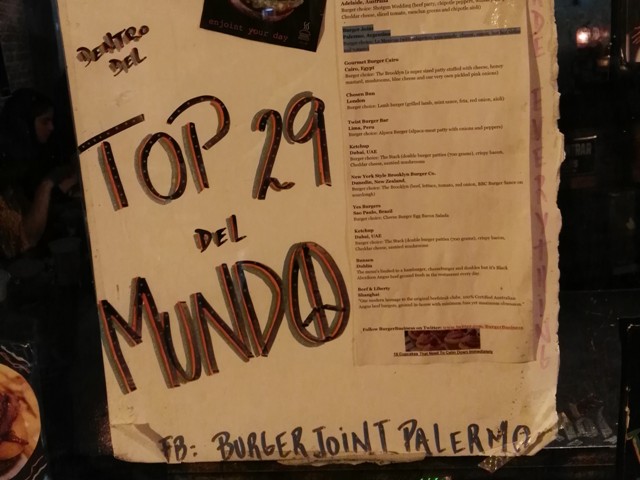 enjoint your day
DENTRO
DEL
TOP 29
DEL
MUNDO
Adelaide, Australia
Burger choice: Shotgun Wedding (beef patty, chipotle peppers,
Cheddar cheese, sliced tomato, and chipotle aioli)
Burger Joint
Palermo, Argentina
Gourmet Burger Cairo
Cairo, Egypt
Burger choice: The Brooklyn (a patty stuffed with cheese, honey
mustard, mushrooms, blue cheese and one very rare pickled pink onions)
Chosen Bun
London
Burger choice: Lamb burger (grilled lamb, mint sauce, feta, red onion, aioli)
Twist Burger Bar
Lima, Peru
Burger choice: Alpaca Burger (alpaca-meat patty with onions and peppers)
Ketchup
Dubai, UAE
Burger choice: The Black (double burger patties (700 grams), crispy bacon,
Cheddar cheese, sautéed mushrooms
New York Style Brooklyn Burger Co.
Dunedin, New Zealand
Burger choice: The Brooklyn (beef, lettuce, tomato, red onion, BBC Burger Sauce on
sourdough)
Yes Burgers
Sao Paulo, Brazil
Burger choice: Cheese Burger Egg Bacon Salada
Ketchup
Dubai, UAE
Burger choice: The Black (double burger patties (700 grams), crispy bacon,
Cheddar cheese, sautéed mushrooms
Bunsen
Dublin
The menu's limited to a hamburger, cheeseburger and doubles but it's Black
Aberdeen Angus beef ground fresh in the restaurant every day
Beef & Liberty
Shanghai
Follow BurgerBusiness on Twitter: www.twitter.com/BurgerBusiness
FB: BURGERJOINT PALERMO